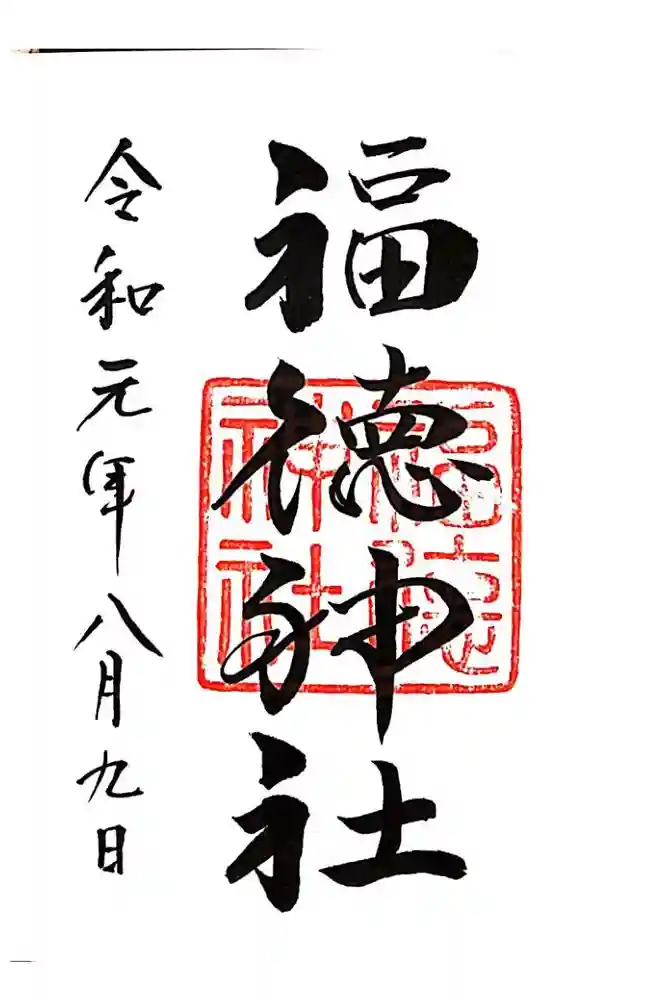 福徳神社
福徳神社
令和元年八月九日